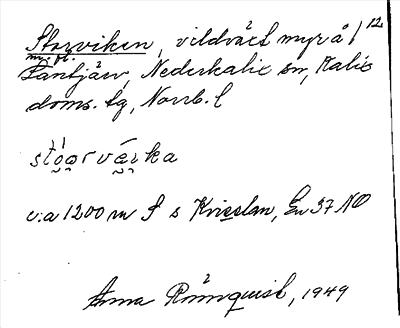 Storviken, vildväxt myrå / 12
m. fl.
Påntjärv, Nederkalix sn, Kalix
doms. tg, Norrb. l
c:a 1200 m S s Kvisslan, En 37 NO
Anna Rönnquist, 1949